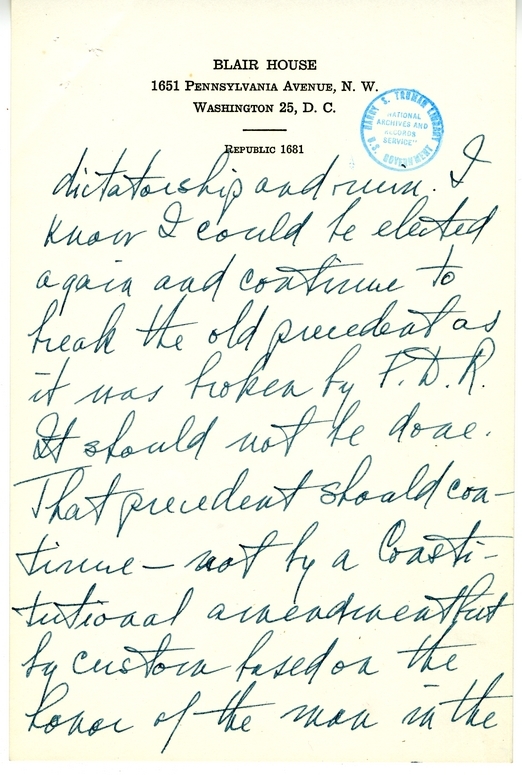 BLAIR HOUSE
1651 PENNSYLVANIA AVENUE, N. W.
WASHINGTON 25, D. C.
REPUBLIC 1681
HARRY S. TRUMAN LIBRARY
"NATIONAL
ARCHIVES AND
RECORDS
SERVICE"
U.S. GOVERNMENT
dictatorship and ruin. I
know I could be elected
again and continue to
break the old precedent as
it was broken by F.D.R.
It should not be done.
That precedent should con-
tinue – not by a Consti-
tutional amendment but
by custom based on the
honor of the man in the